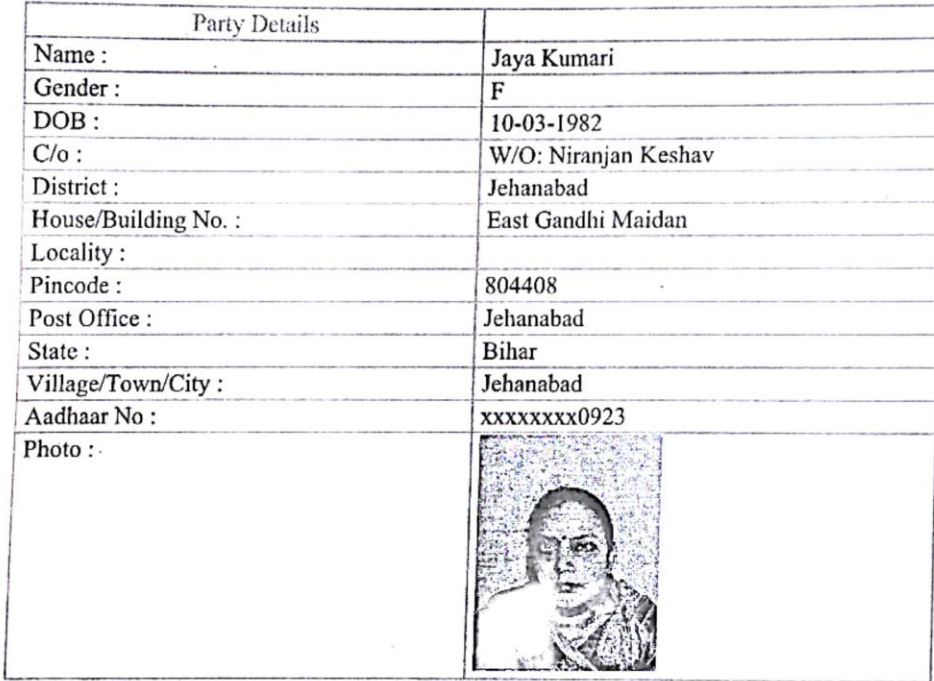 Party Details
Name : Jaya Kumari
Gender : F
DOB : 10-03-1982
C/o : W/O: Niranjan Keshav
District : Jehanabad
House/Building No. : East Gandhi Maidan
Locality :
Pincode : 804408
Post Office : Jehanabad
State : Bihar
Village/Town/City : Jehanabad
Aadhaar No : xxxxxxxx0923
Photo :